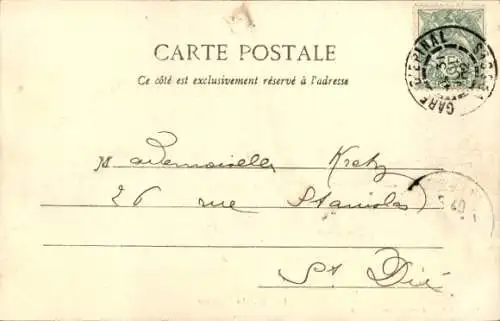 CARTE POSTALE
Ce côté est exclusivement réservé à l'adresse
GARE D'EPINAL
Mademoiselle Kratz
26 rue Stanislas
St Dié